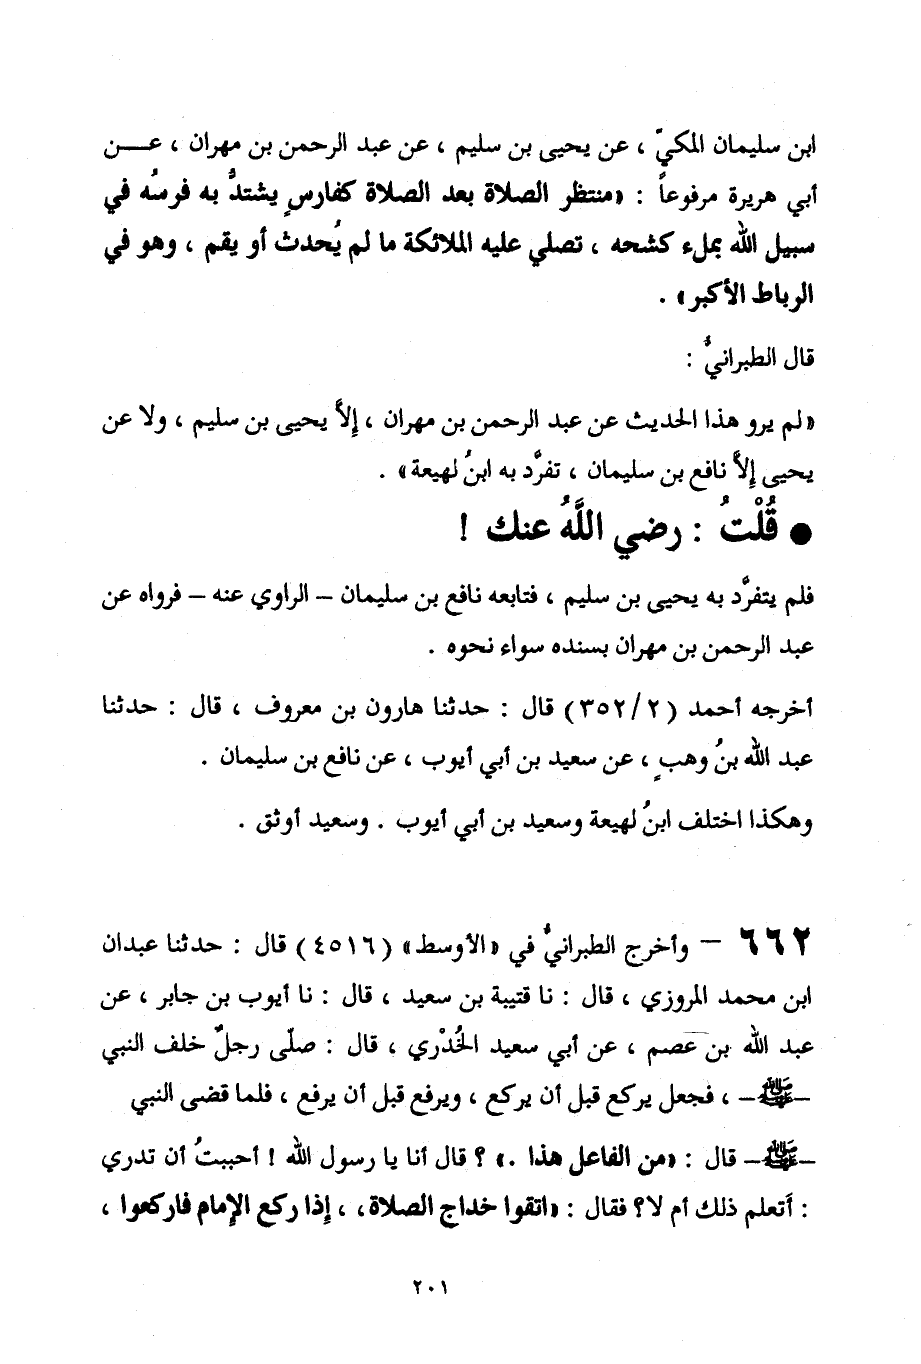 ابن سليمان المكيّ ، عن يحيى بن سليم ، عن عبد الرحمن بن مهران ، عـــن
أبي هريرة مرفوعاً : «منتظر الصلاة بعد الصلاة كفارسٍ يشتدُّ به فرسُه في
سبيل الله بملء كشحه ، تصلي عليه الملائكة ما لم يُحدث أو يقم ، وهو في
الرباط الأكبر» .
قال الطبرانيُّ :
«لم يرو هذا الحديث عن عبد الرحمن بن مهران ، إلاَّ يحيى بن سليم ، ولا عن
يحيى إلاَّ نافع بن سليمان ، تفرَّد به ابنُ لهيعة» .
● قُلْتُ : رضي اللَّهُ عنك !
فلم يتفرَّد به يحيى بن سليم ، فتابعه نافع بن سليمان – الراوي عنه – فرواه عن
عبد الرحمن بن مهران بسنده سواء نحوه .
أخرجه أحمد (٣٥٢/٢) قال : حدثنا هارون بن معروف ، قال : حدثنا
عبد الله بنُ وهبٍ ، عن سعيد بن أبي أيوب ، عن نافع بن سليمان .
وهكذا اختلف ابنُ لهيعة وسعيد بن أبي أيوب . وسعيد أوثق .
٦٦٢ – وأخرج الطبرانيُّ في «الأوسط» (٤٥١٦) قال : حدثنا عبدان
ابن محمد المروزي ، قال : نا قتيبة بن سعيد ، قال : نا أيوب بن جابر ، عن
عبد الله بن عصم ، عن أبي سعيد الخُدْري ، قال : صلّى رجلٌ خلف النبي
–ﷺ– ، فجعل يركع قبل أن يركع ، ويرفع قبل أن يرفع ، فلما قضى النبي
–ﷺ– قال : «من الفاعل هذا .» ؟ قال أنا يا رسول الله ! أحببتُ أن تدري
: أتعلم ذلك أم لا؟ فقال : «اتقوا خداج الصلاة، ، إذا ركع الإمام فاركعوا ،
٢٠١